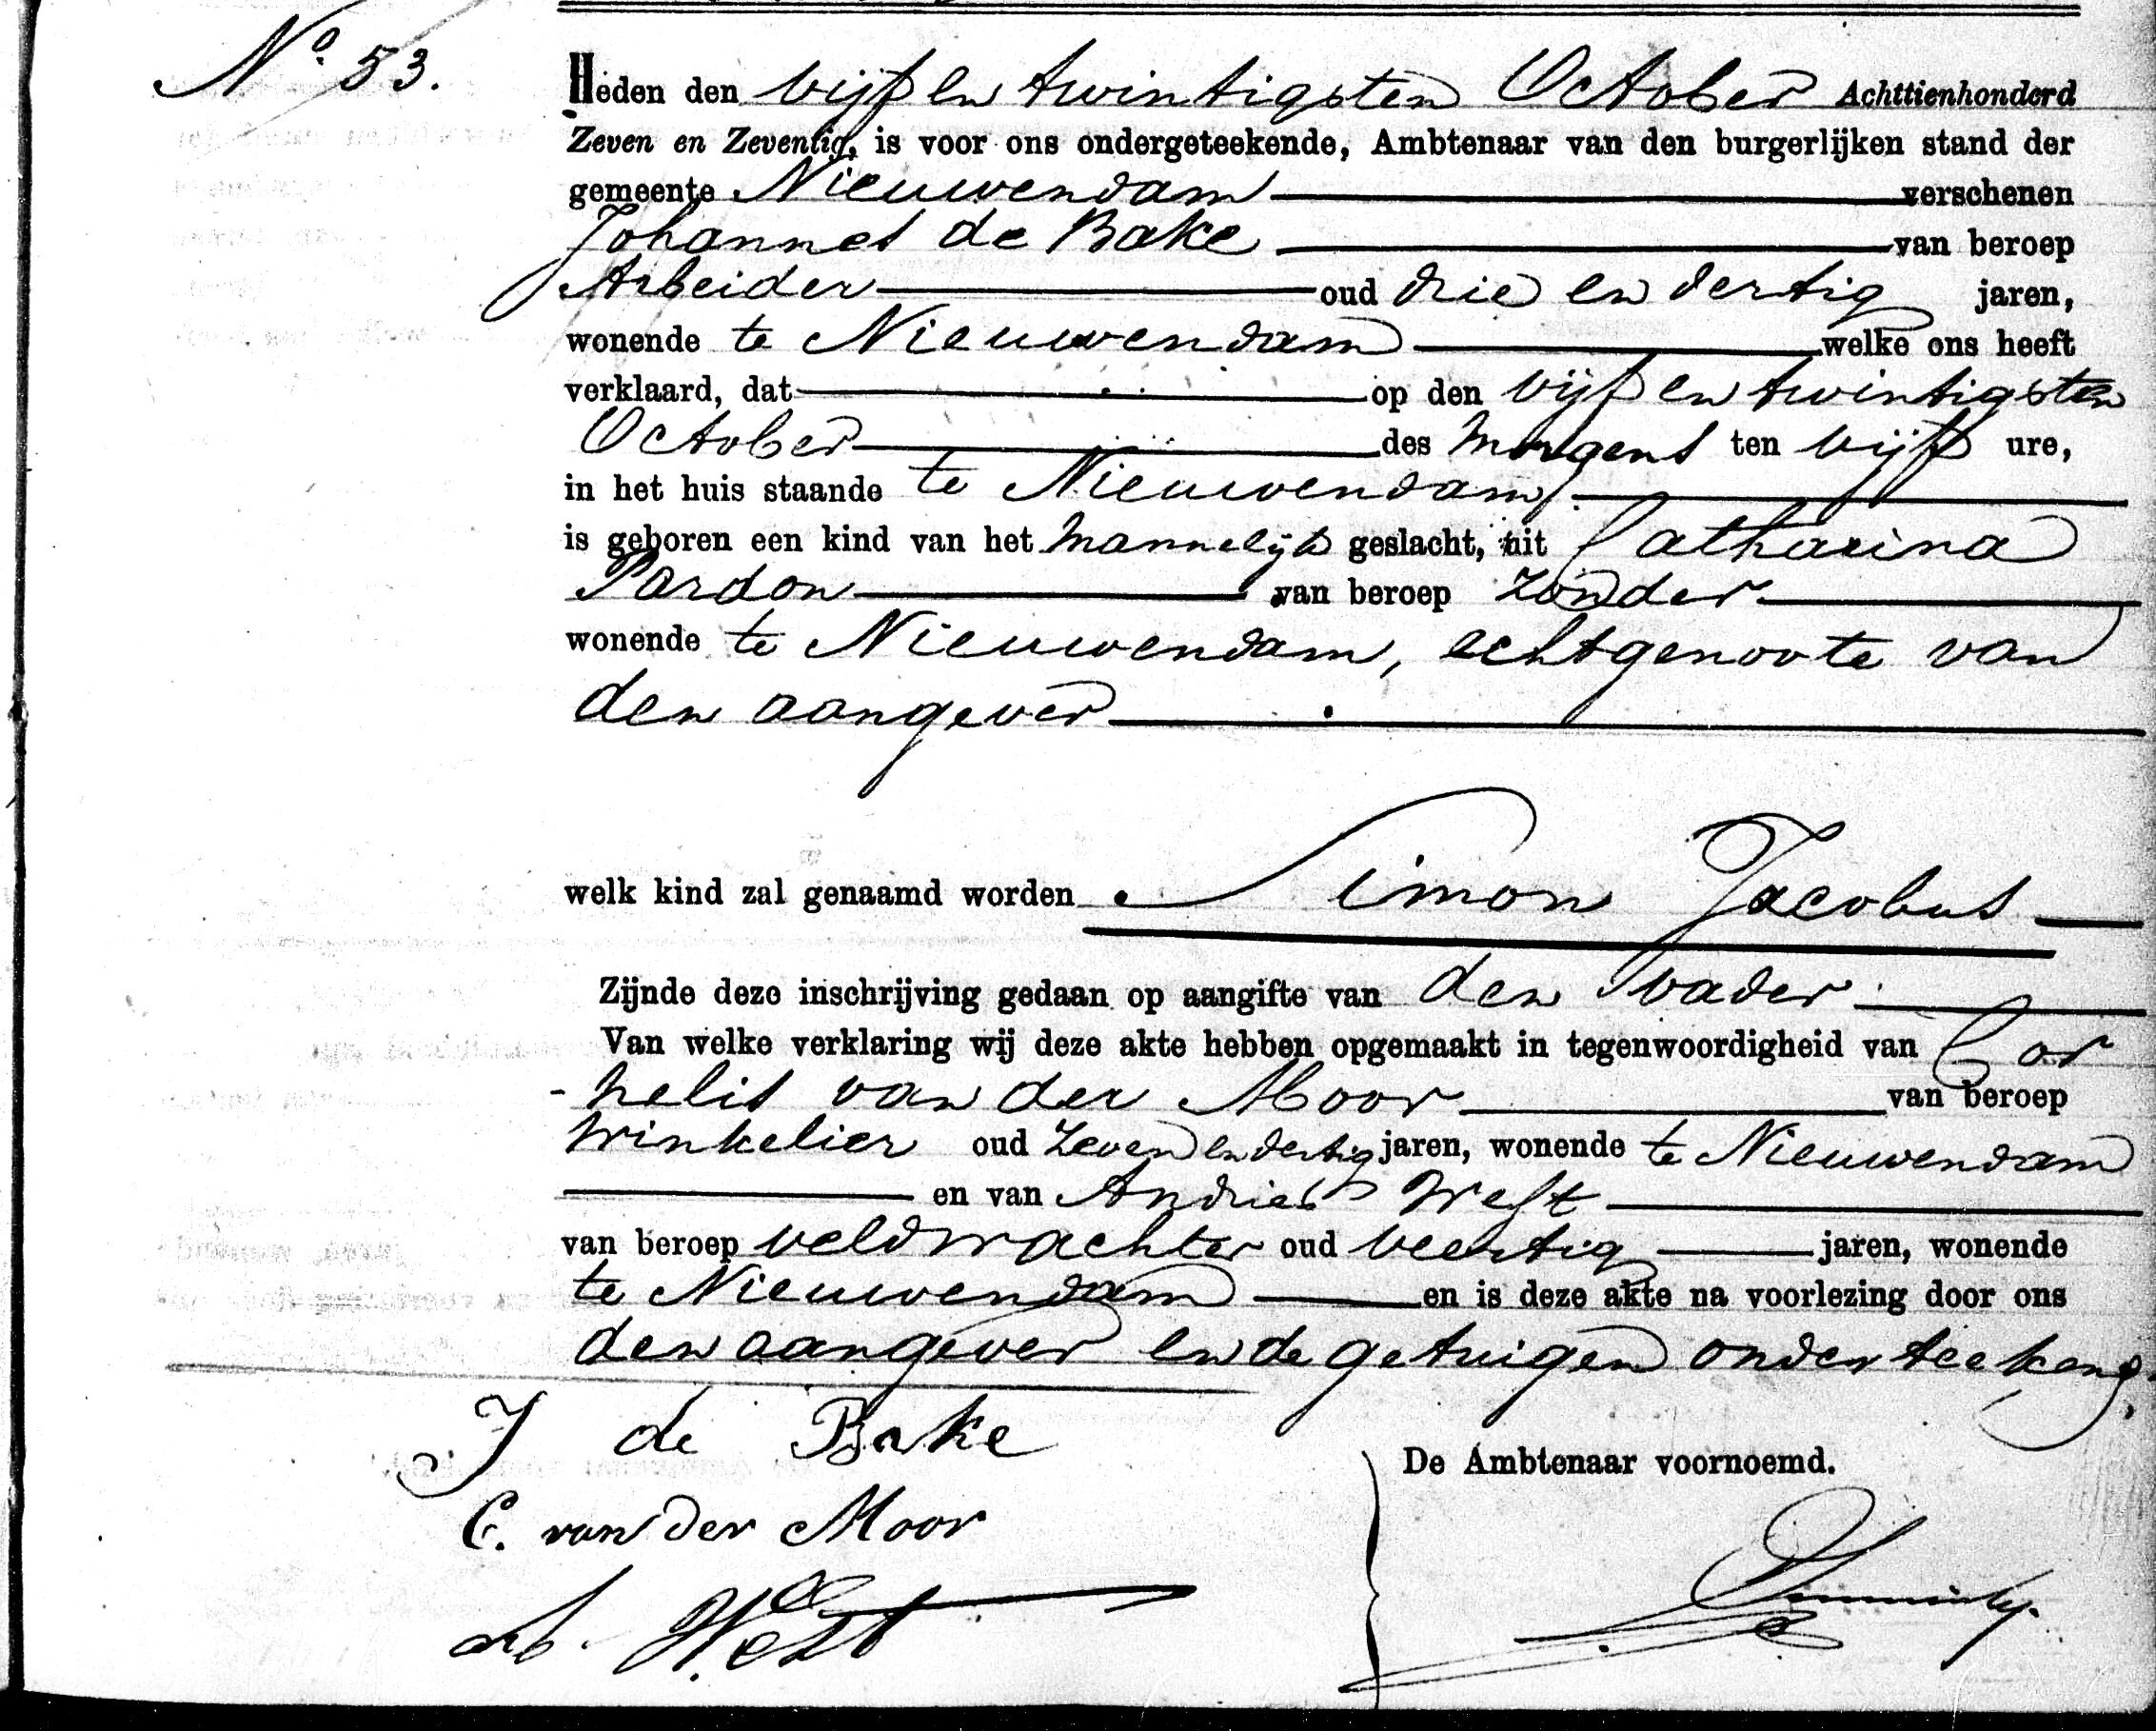 No. 53.
Heden den vijf en twintigsten October Achttienhonderd
Zeven en Zeventig, is voor ons ondergeteekende, Ambtenaar van den burgerlijken stand der
gemeente Nieuwendam verschenen
Johannes de Bake van beroep
Arbeider oud drie en dertig jaren,
wonende te Nieuwendam welke ons heeft
verklaard, dat op den vijf en twintigsten
October des morgens ten vijf ure,
in het huis staande te Nieuwendam
is geboren een kind van het mannelijk geslacht, uit Catharina
Pardon van beroep zonder
wonende te Nieuwendam, echtgenoote van
den aangever
welk kind zal genaamd worden Simon Jacobus
Zijnde deze inschrijving gedaan op aangifte van den vader
Van welke verklaring wij deze akte hebben opgemaakt in tegenwoordigheid van Cor
-nelis van der Moor van beroep
Winkelier oud zeven en dertig jaren, wonende te Nieuwendam
en van Andries West
van beroep veldwachter oud veertig jaren, wonende
te Nieuwendam en is deze akte na voorlezing door ons
den aangever en de getuigen onderteekend,
J de Bake
De Ambtenaar voornoemd.
C. van der Moor
West